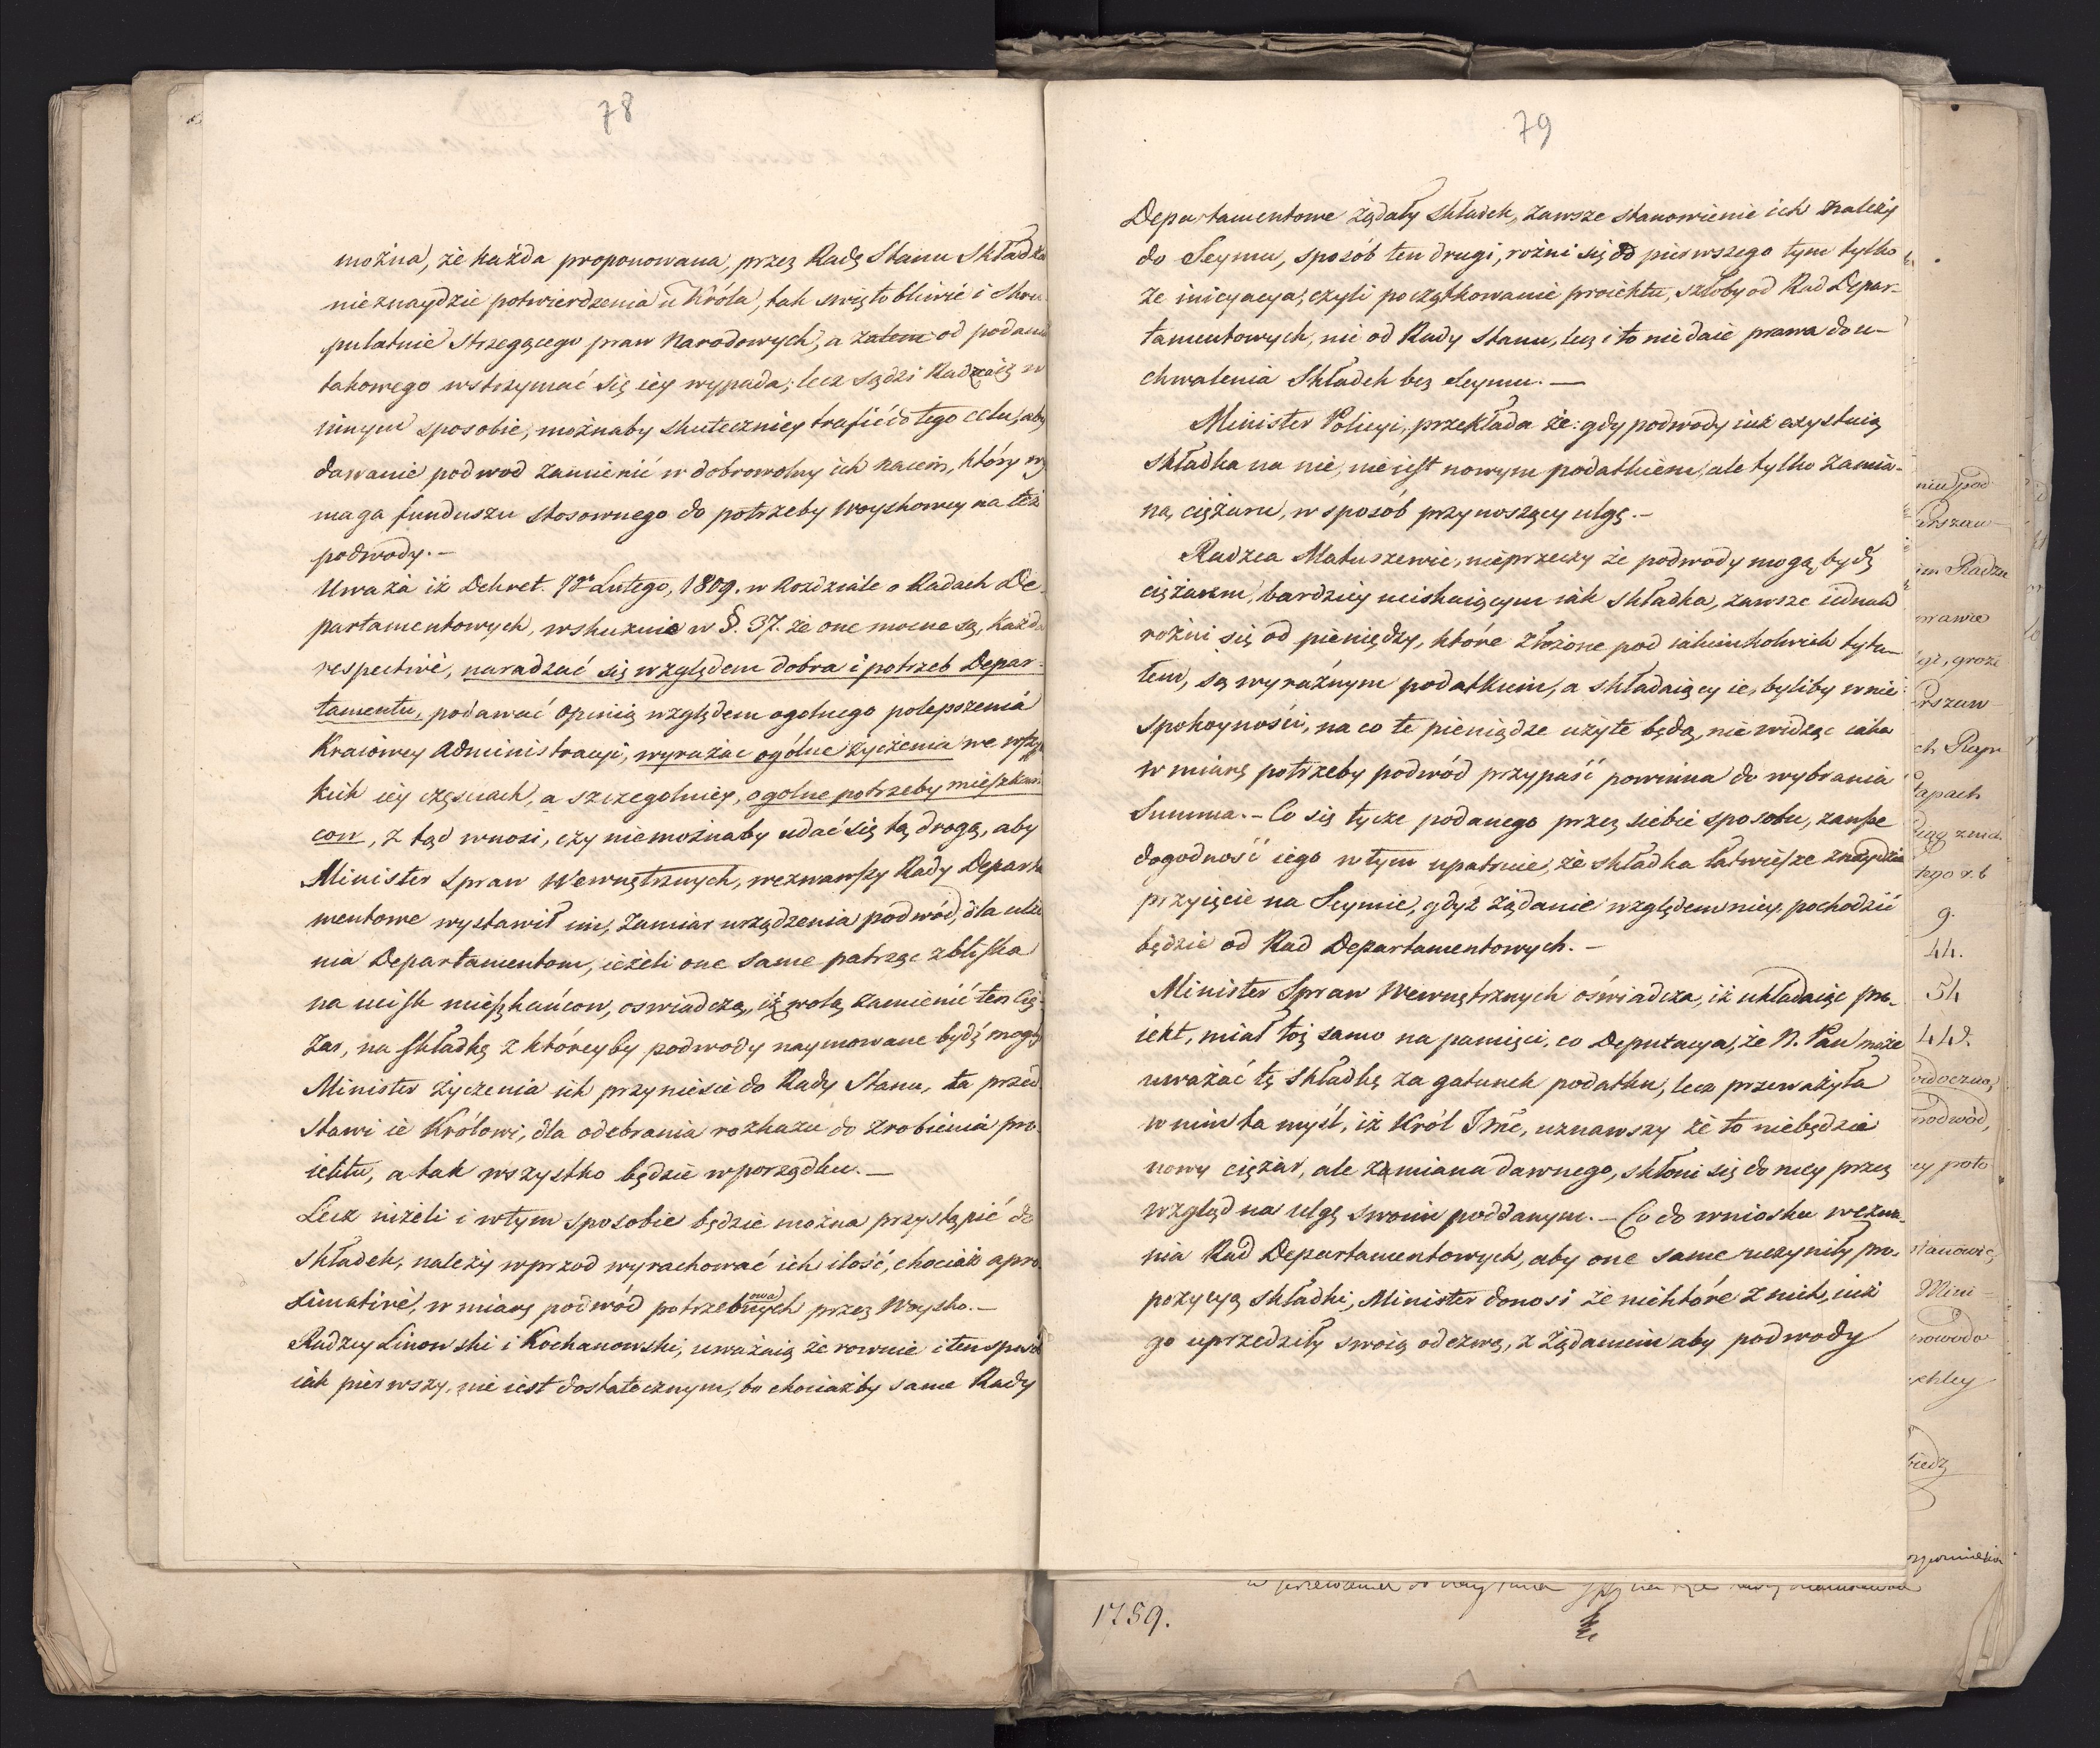 78
można, że każda proponowana, przez Radę Stanu Składka
nieznaydzie potwierdzenia u Króla, tak swiętobliwie i skru-
pulatnie strzegącego praw Narodowych, a zatem od podania
takowego wstrzymać się iey wypada; lecz sądzi Radca iż w
innym sposobie, możnaby skuteczniey trafić do tego celu, aby
dawanie podwod zamienić w dobrowolny ich naiem, który wy
maga funduszu stosownego do potrzeby Woyskowey na też
podwody. –
Uważa iż Dekret. 7º Lutego, 1809. w Rozdziale o Radach De-
partamentowych, wskazuie w §. 37. że one mocne są, każda
respective, naradzać się względem dobra i potrzeb Depar-
tamentu, podawać opinią względem ogolnego polepszenia
Kraiowey Administracyi, wyrażac ogólne życzenia we wszy
kich iey częsciach, a szczegolniey, ogolne potrzeby mieszkań
cow, z tąd wnosi, czy niemożnaby udać się tą drogą, aby
Minister Spraw Wewnętrznych, wezwawszy Rady Departa
mentowe wystawił im, zamiar urządzenia podwód, dla ulże
nia Departamentom, ieżeli one same patrząc zbliska
na ucisk mieszkańcow, oswiadczą, iż wolą zamienić ten Cię-
żar, na składkę z któreyby podwody naymowane bydź mogły
Minister życzenia ich przyniesie do Rady Stanu, ta przed
stawi ie Królowi, dla odebrania rozkazu do zrobienia pro-
iektu, a tak wszystko będzie w porządku. –
Lecz niżeli i w tym sposobie będzie można przystąpić do
składek, należy wprzod wyrachować ich ilość, chociaż apro-
ximative, w miarę podwód potrzebnych przez Woysko. –
owa
Radzcy Linowski i Kochanowski, uważaią że rownie i ten sposób
iak pierwszy, nie iest dostatecznym, bo chociażby same Rady
79
Departamentowe żądały składek, zawsze stanowienie ich należy
do Seymu, sposób ten drugi, rożni się od pierwszego tym tylko
że inicyacya, czyli początkowanie proiektu, szłoby od Rad Depar-
tamentowych, nie od Rady Stanu, lecz i to nie daie prawa do u-
chwalenia Składek bez Seymu. —
Minister Policyi, przekłada że: gdy podwody iuż exystuią
składka na nie, nie iest nowym podatkiem, ale tylko zamia-
ną, ciężaru, w sposób przynoszący ulgę. –
Radzca Matuszewic, nieprzeczy że podwody mogą bydź
ciężarem, bardziey uciskaiącym iak składka, zawsze iednak
rożni się od pieniędzy, które złożone pod iakimkolwiek tytu-
łem, są wyraźnym podatkiem, a składaiący ie, byliby w nie
spokoyności, na co te pieniądze użyte będą, nie widząc iaka
w miarę potrzeby podwód przypaść powinna do wybrania
Summa. – Co się tycze podanego przez siebie sposobu, zawsze
dogodność iego w tym upatruie, że składka łatwieysze znaydzie
przyięcie na Seymie, gdyż żądanie względem niey, pochodzić
będzie od Rad Departamentowych. –
Minister Spraw Wewnętrznych oświadcza, iż układaiąc pro-
iekt, miał toż samo na pamięci, co Deputacya, że N. Pan może
uważać tę składkę za gatunek podatku, lecz przeważyła
w nim ta myśl, iż Król Jmć, uznawszy że to niebędzie
nowy ciężar, ale zamiana dawnego, skłoni się do niey przez
wzgląd na ulgę swoim poddanym. – Co do wniosku wezwa-
nia Rad Departamentowych, aby one same uczyniły pro-
pozycyą składki, Minister donosi że niektóre z nich, iuż
go uprzedziły swoią odezwą, z żądaniem aby podwody
1759.
9.
44.
54
Mini=